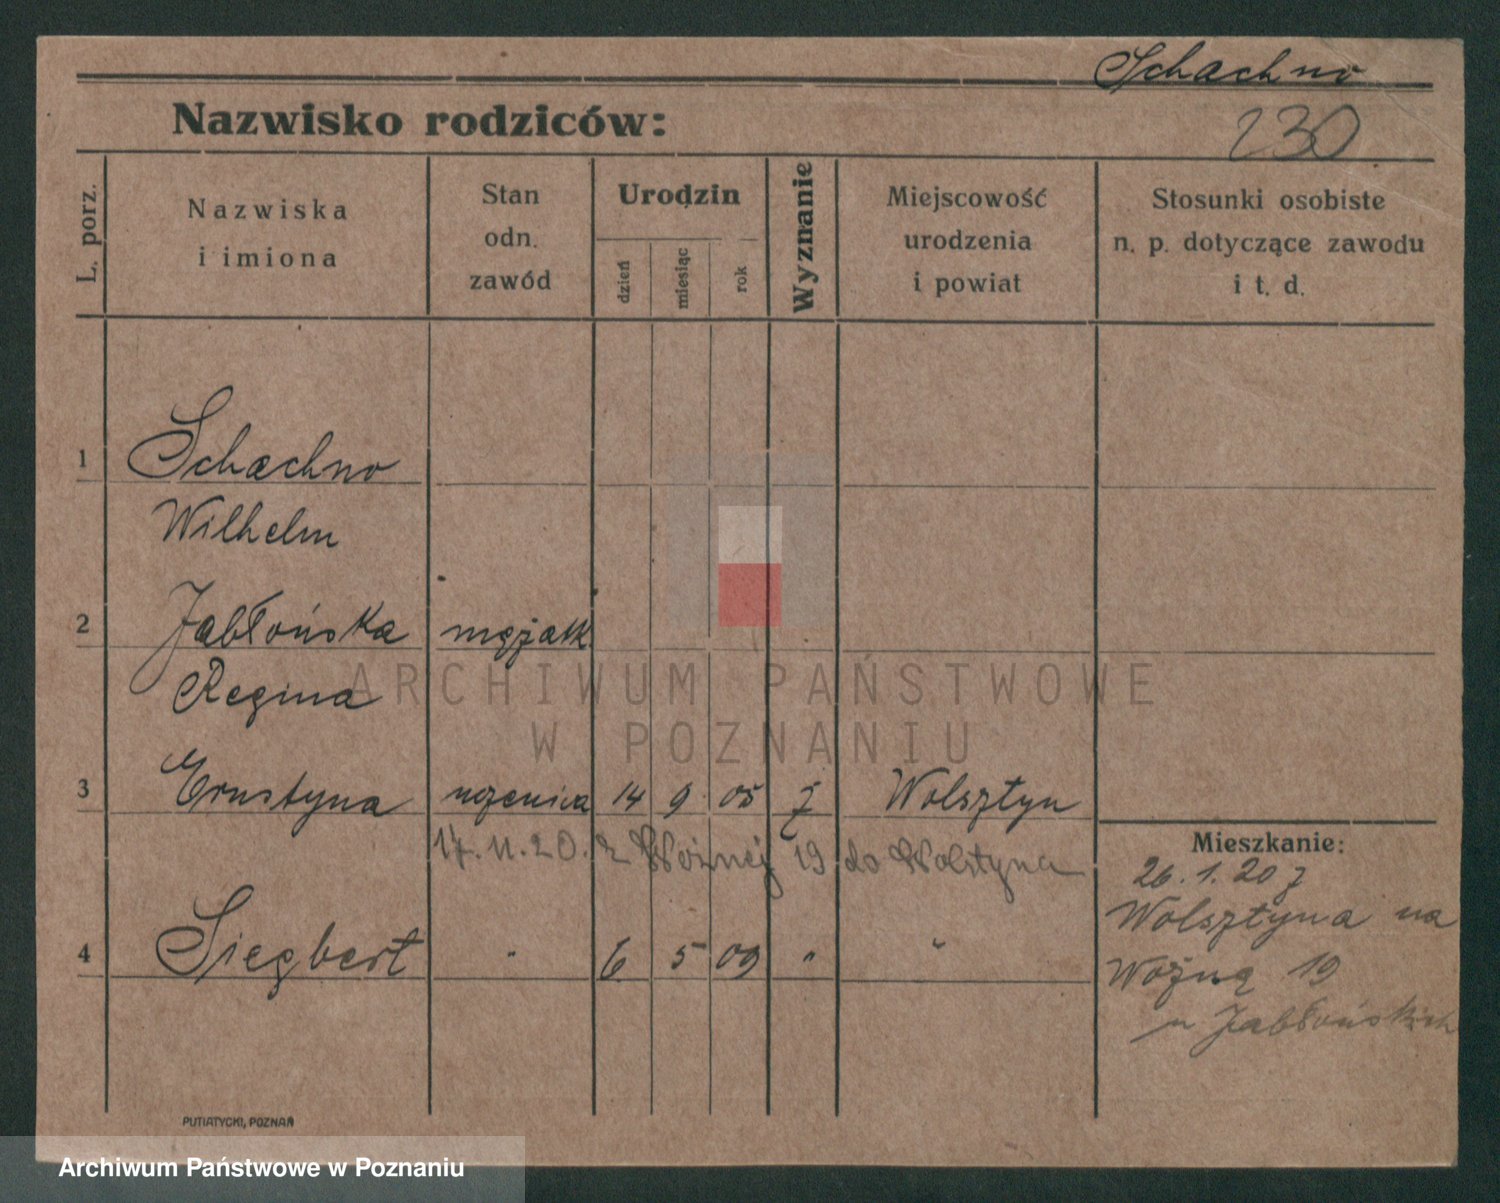 Schachno
Nazwisko rodziców:
230
L. porz.
Nazwiska
i imiona
Stan
odn.
zawód
Urodzin
dzień
miesiąc
rok
Wyznanie
Miejscowość
urodzenia
i powiat
Stosunki osobiste
n. p. dotyczące zawodu
i t. d.
1
Schachno
Wilhelm
2
Jabłońska mężatk.
Regina
3
Ernstyna uczenica 14 9 05 ż Wolsztyn
17.11.20. z Woźnej 19 do Wolsztyna
4
Siegbert " 6 5 09 " "
Mieszkanie:
26.1.20 z
Wolsztyna na
Woźną 19
u Jabłońskich
PUTIATYCKI, POZNAŃ
ARCHIWUM PAŃSTWOWE
W POZNANIU
Archiwum Państwowe w Poznaniu